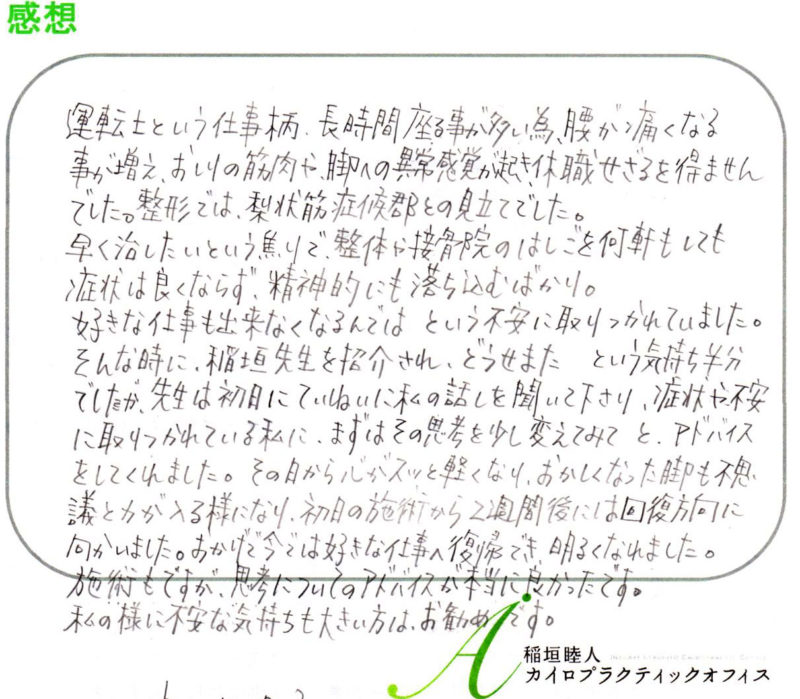 感想
運転士という仕事柄、長時間座る事が多い為、腰が痛くなる
事が増え、おしりの筋肉や、脚への異常感覚が起き、休職せざるを得ません
でした。整形では、梨状筋症候郡との見立てでした。
早く治したいという焦りで、整体や接骨院のはしごを何軒もしても
症状は良くならず、精神的にも落ち込むばかり。
好きな仕事も出来なくなるんでは という不安に取りつかれていました。
そんな時に、稲垣先生を紹介され、どうせまた という気持ち半分
でしたが、先生は初日にていねいに私の話しを聞いて下さり、症状や不安
に取りつかれている私に、まずはその思考を少し変えてみて と、アドバイス
をしてくれました。その日から心がスッと軽くなり、おかしくなった脚も不思
議と力が入る様になり、初日の施術から2週間後には回復方向に
向かいました。おかげで今では好きな仕事へ復帰でき、明るくなれました。
施術もですが、思考についてのアドバイスが本当に良かったです。
私の様に不安な気持ちも大きい方は、お勧めです。
稲垣睦人
カイロプラクティックオフィス